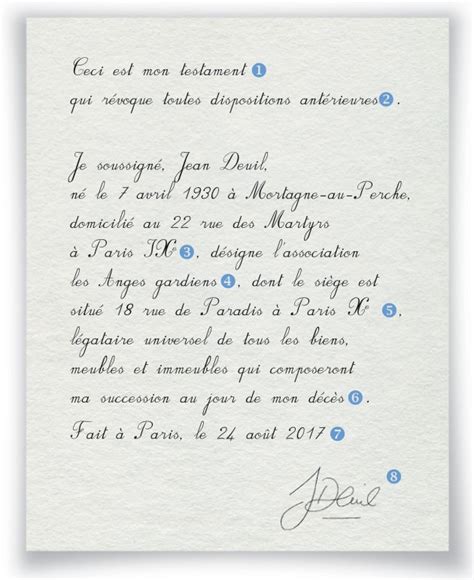 Ceci est mon testament 1
qui révoque toutes dispositions antérieures 2 .
Je soussigné, Jean Deuil,
né le 7 avril 1930 à Mortagne-au-Perche,
domicilié au 22 rue des Martyrs
à Paris IXe 3 , désigne l'association
les Anges gardiens 4 , dont le siège est
situé 18 rue de Paradis à Paris Xe 5 ,
légataire universel de tous les biens,
meubles et immeubles qui composeront
ma succession au jour de mon décès 6 .
Fait à Paris, le 24 août 2017 7
8
JDeuil